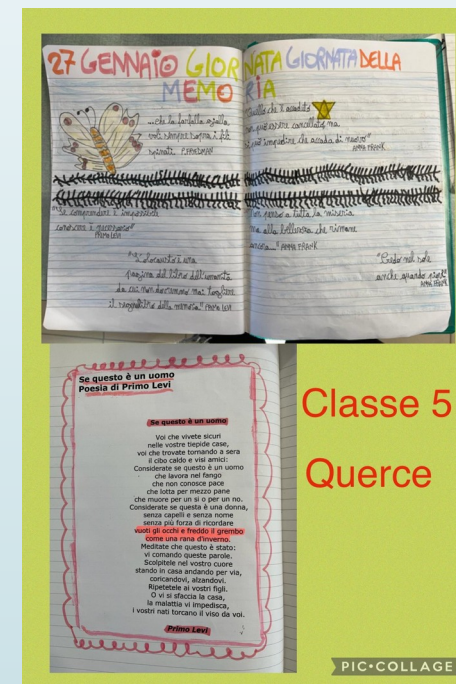 27 GENNAIO GIORNATA GIORNATA DELLA
MEMORIA
...che la farfalla gialla
voli sempre sopra i fili
spinati
"Quello che è accaduto
non può essere cancellato, ma
si può impedire che accada di nuovo"
ANNA FRANK
"Se comprendere è impossibile
conoscere è necessario"
PRIMO LEVI
penso a tutta la miseria
ma alla bellezza che rimane
ancora..." ANNA FRANK
"L'olocausto è una
pagina del libro dell'umanità
da cui non dovremo mai togliere
il segnalibro della memoria" PRIMO LEVI
"Credo nel sole
anche quando piove"
ANNA FRANK
Se questo è un uomo
Poesia di Primo Levi
Se questo è un uomo
Voi che vivete sicuri
nelle vostre tiepide case,
voi che trovate tornando a sera
il cibo caldo e visi amici:
Considerate se questo è un uomo
che lavora nel fango
che non conosce pace
che lotta per mezzo pane
che muore per un si o per un no.
Considerate se questa è una donna,
senza capelli e senza nome
senza più forza di ricordare
vuoti gli occhi e freddo il grembo
come una rana d'inverno.
Meditate che questo è stato:
vi comando queste parole.
Scolpitele nel vostro cuore
stando in casa andando per via,
coricandovi, alzandovi.
Ripetetele ai vostri figli.
O vi si sfaccia la casa,
la malattia vi impedisca,
i vostri nati torcano il viso da voi.
Primo Levi
Classe 5
Querce
PIC•COLLAGE